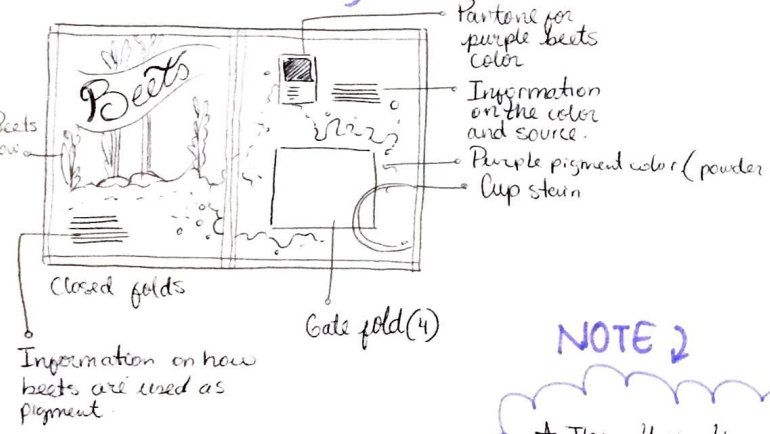 Pantone for
purple beets
color
Beets
Information
on the color
and source.
Beets
Purple pigment color (powder
Cup stain
Closed folds
Gate fold (4)
NOTE
Information on how
beets are used as
pigment.